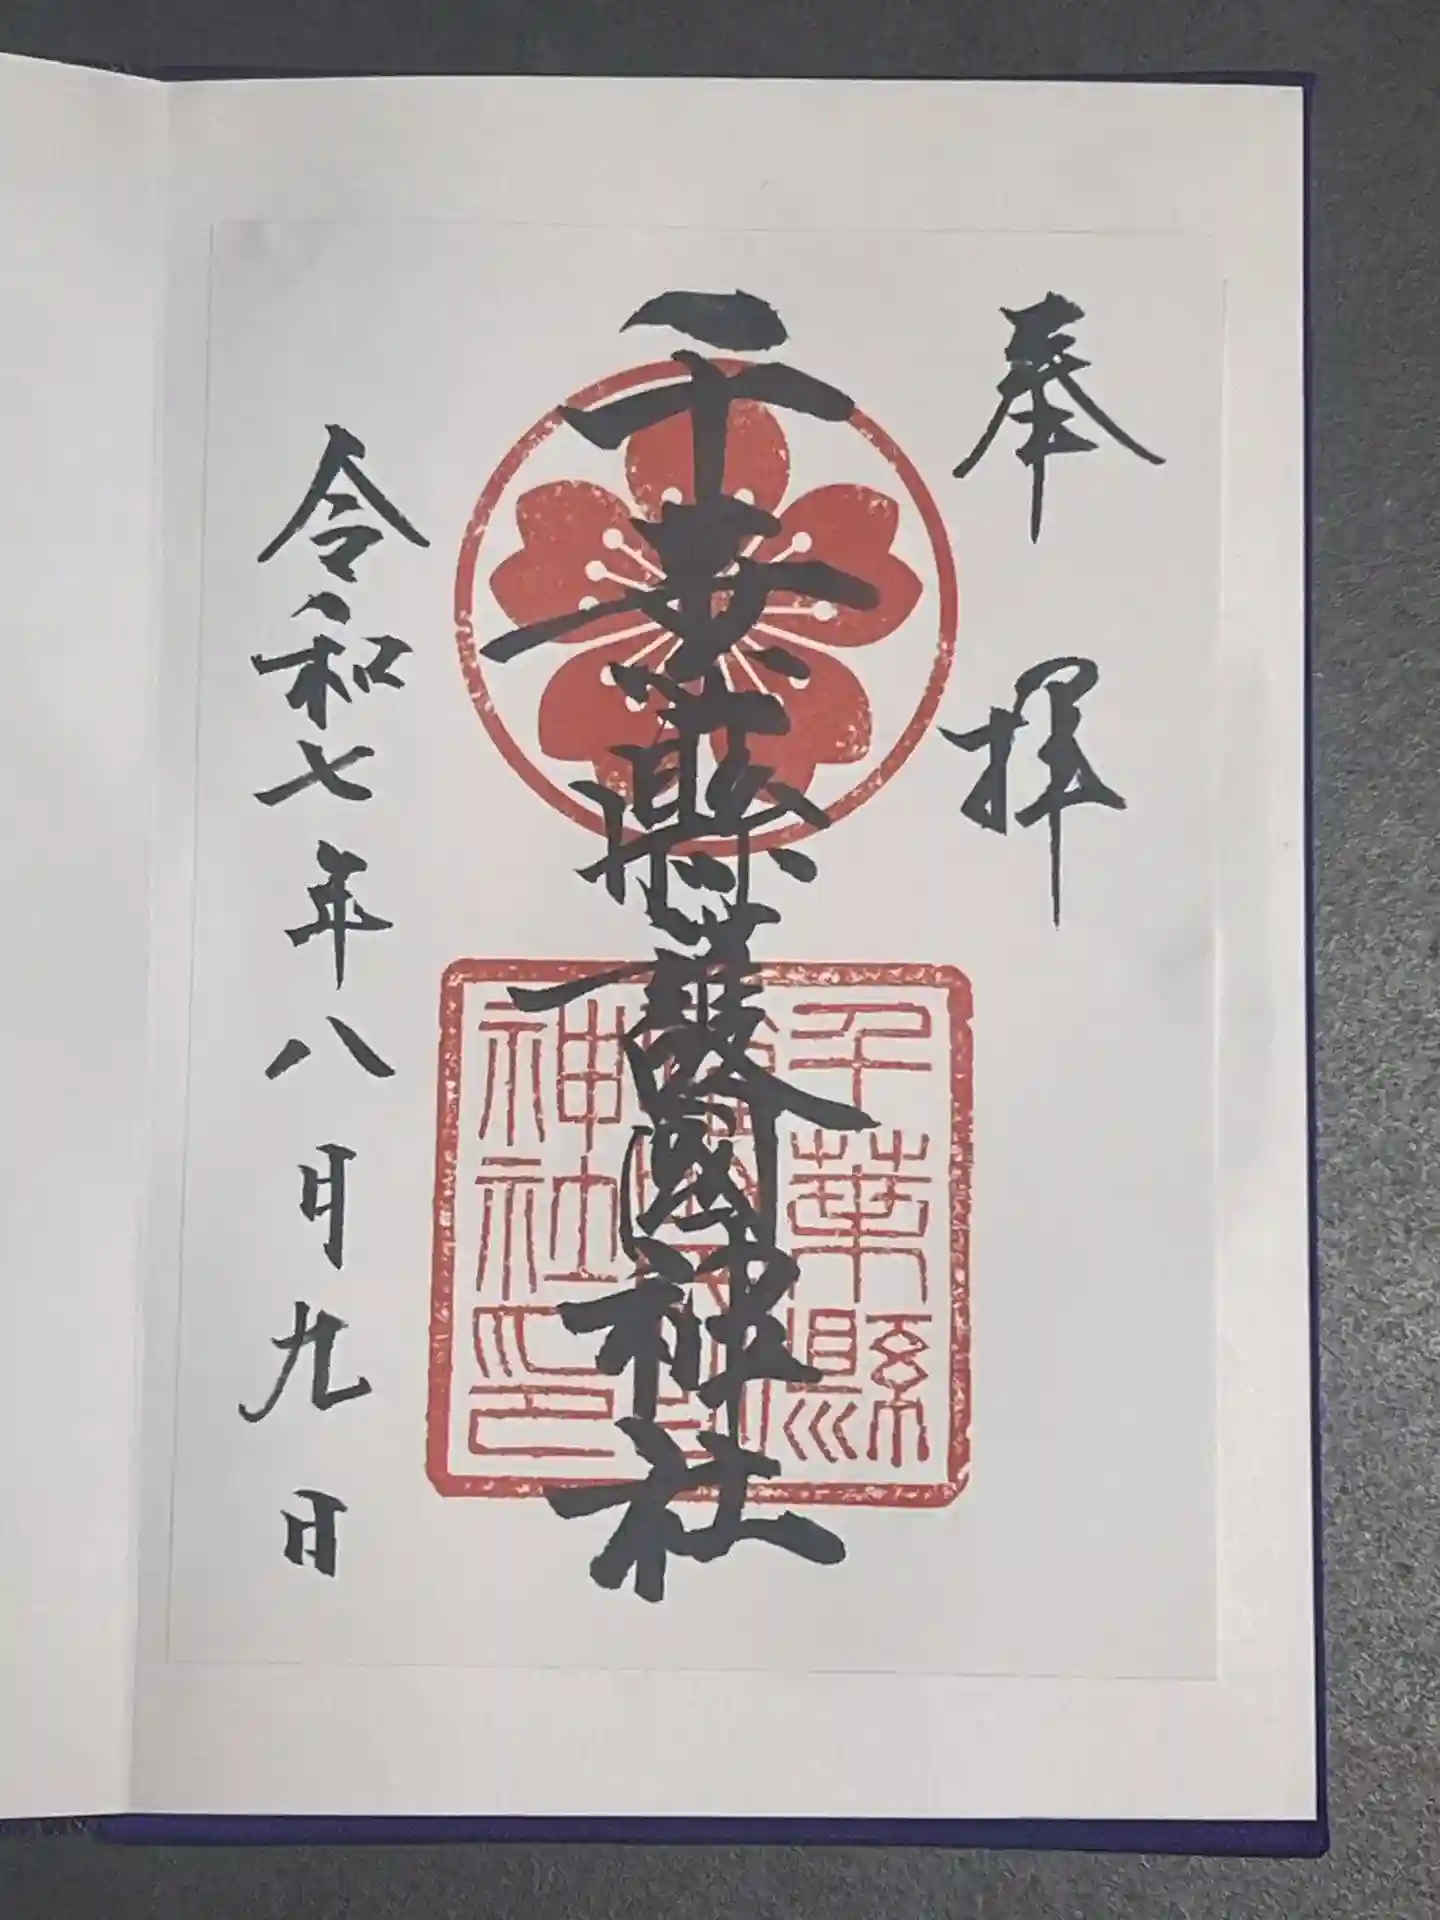 奉拝
千葉縣護國神社
令和七年八月九日
千葉縣
神社之印